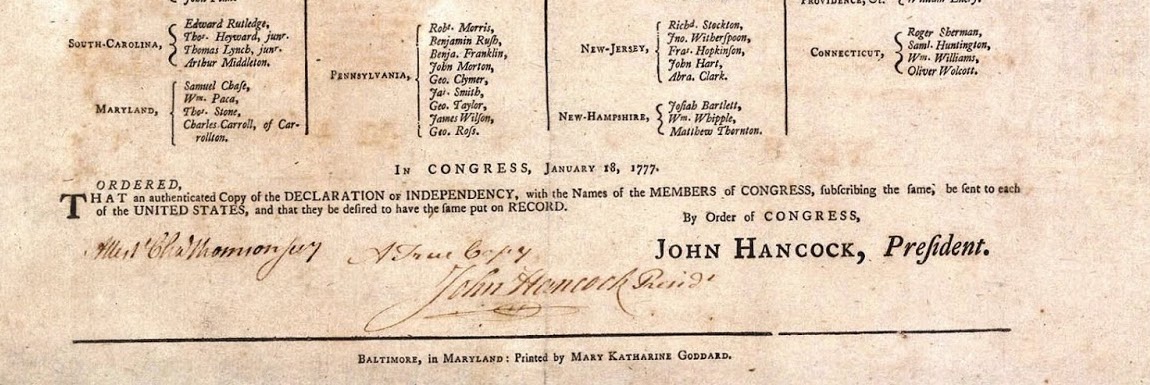 South-Carolina,
Edward Rutledge,
Thoˢ. Heyward, junʳ.
Thomas Lynch, junʳ.
Arthur Middleton.
Maryland,
Samuel Chaſe,
Wᵐ. Paca,
Thoˢ. Stone,
Charles Carroll, of Car-
rollton.
Pennsylvania,
Robᵗ. Morris,
Benjamin Ruſh,
Benja. Franklin,
John Morton,
Geo. Clymer,
Jaˢ. Smith,
Geo. Taylor,
James Wilſon,
Geo. Roſs.
New-Jersey,
Richᵈ. Stockton,
Jno. Witherſpoon,
Fraˢ. Hopkinſon,
John Hart,
Abra. Clark.
New-Hampshire,
Joſiah Bartlett,
Wᵐ. Whipple,
Matthew Thornton.
Providence, &c.
William Ellery.
Connecticut,
Roger Sherman,
Samˡ. Huntington,
Wᵐ. Williams,
Oliver Wolcott.
In CONGRESS, January 18, 1777.
ORDERED,
THAT an authenticated Copy of the DECLARATION of INDEPENDENCY, with the Names of the MEMBERS of CONGRESS, ſubſcribing the ſame, be ſent to each
of the UNITED STATES, and that they be deſired to have the ſame put on RECORD.
By Order of CONGRESS,
JOHN HANCOCK, Preſident.
Attest Chaˢ Thomson secy
A True Copy
John Hancock Presidᵗ
Baltimore, in Maryland: Printed by Mary Katharine Goddard.